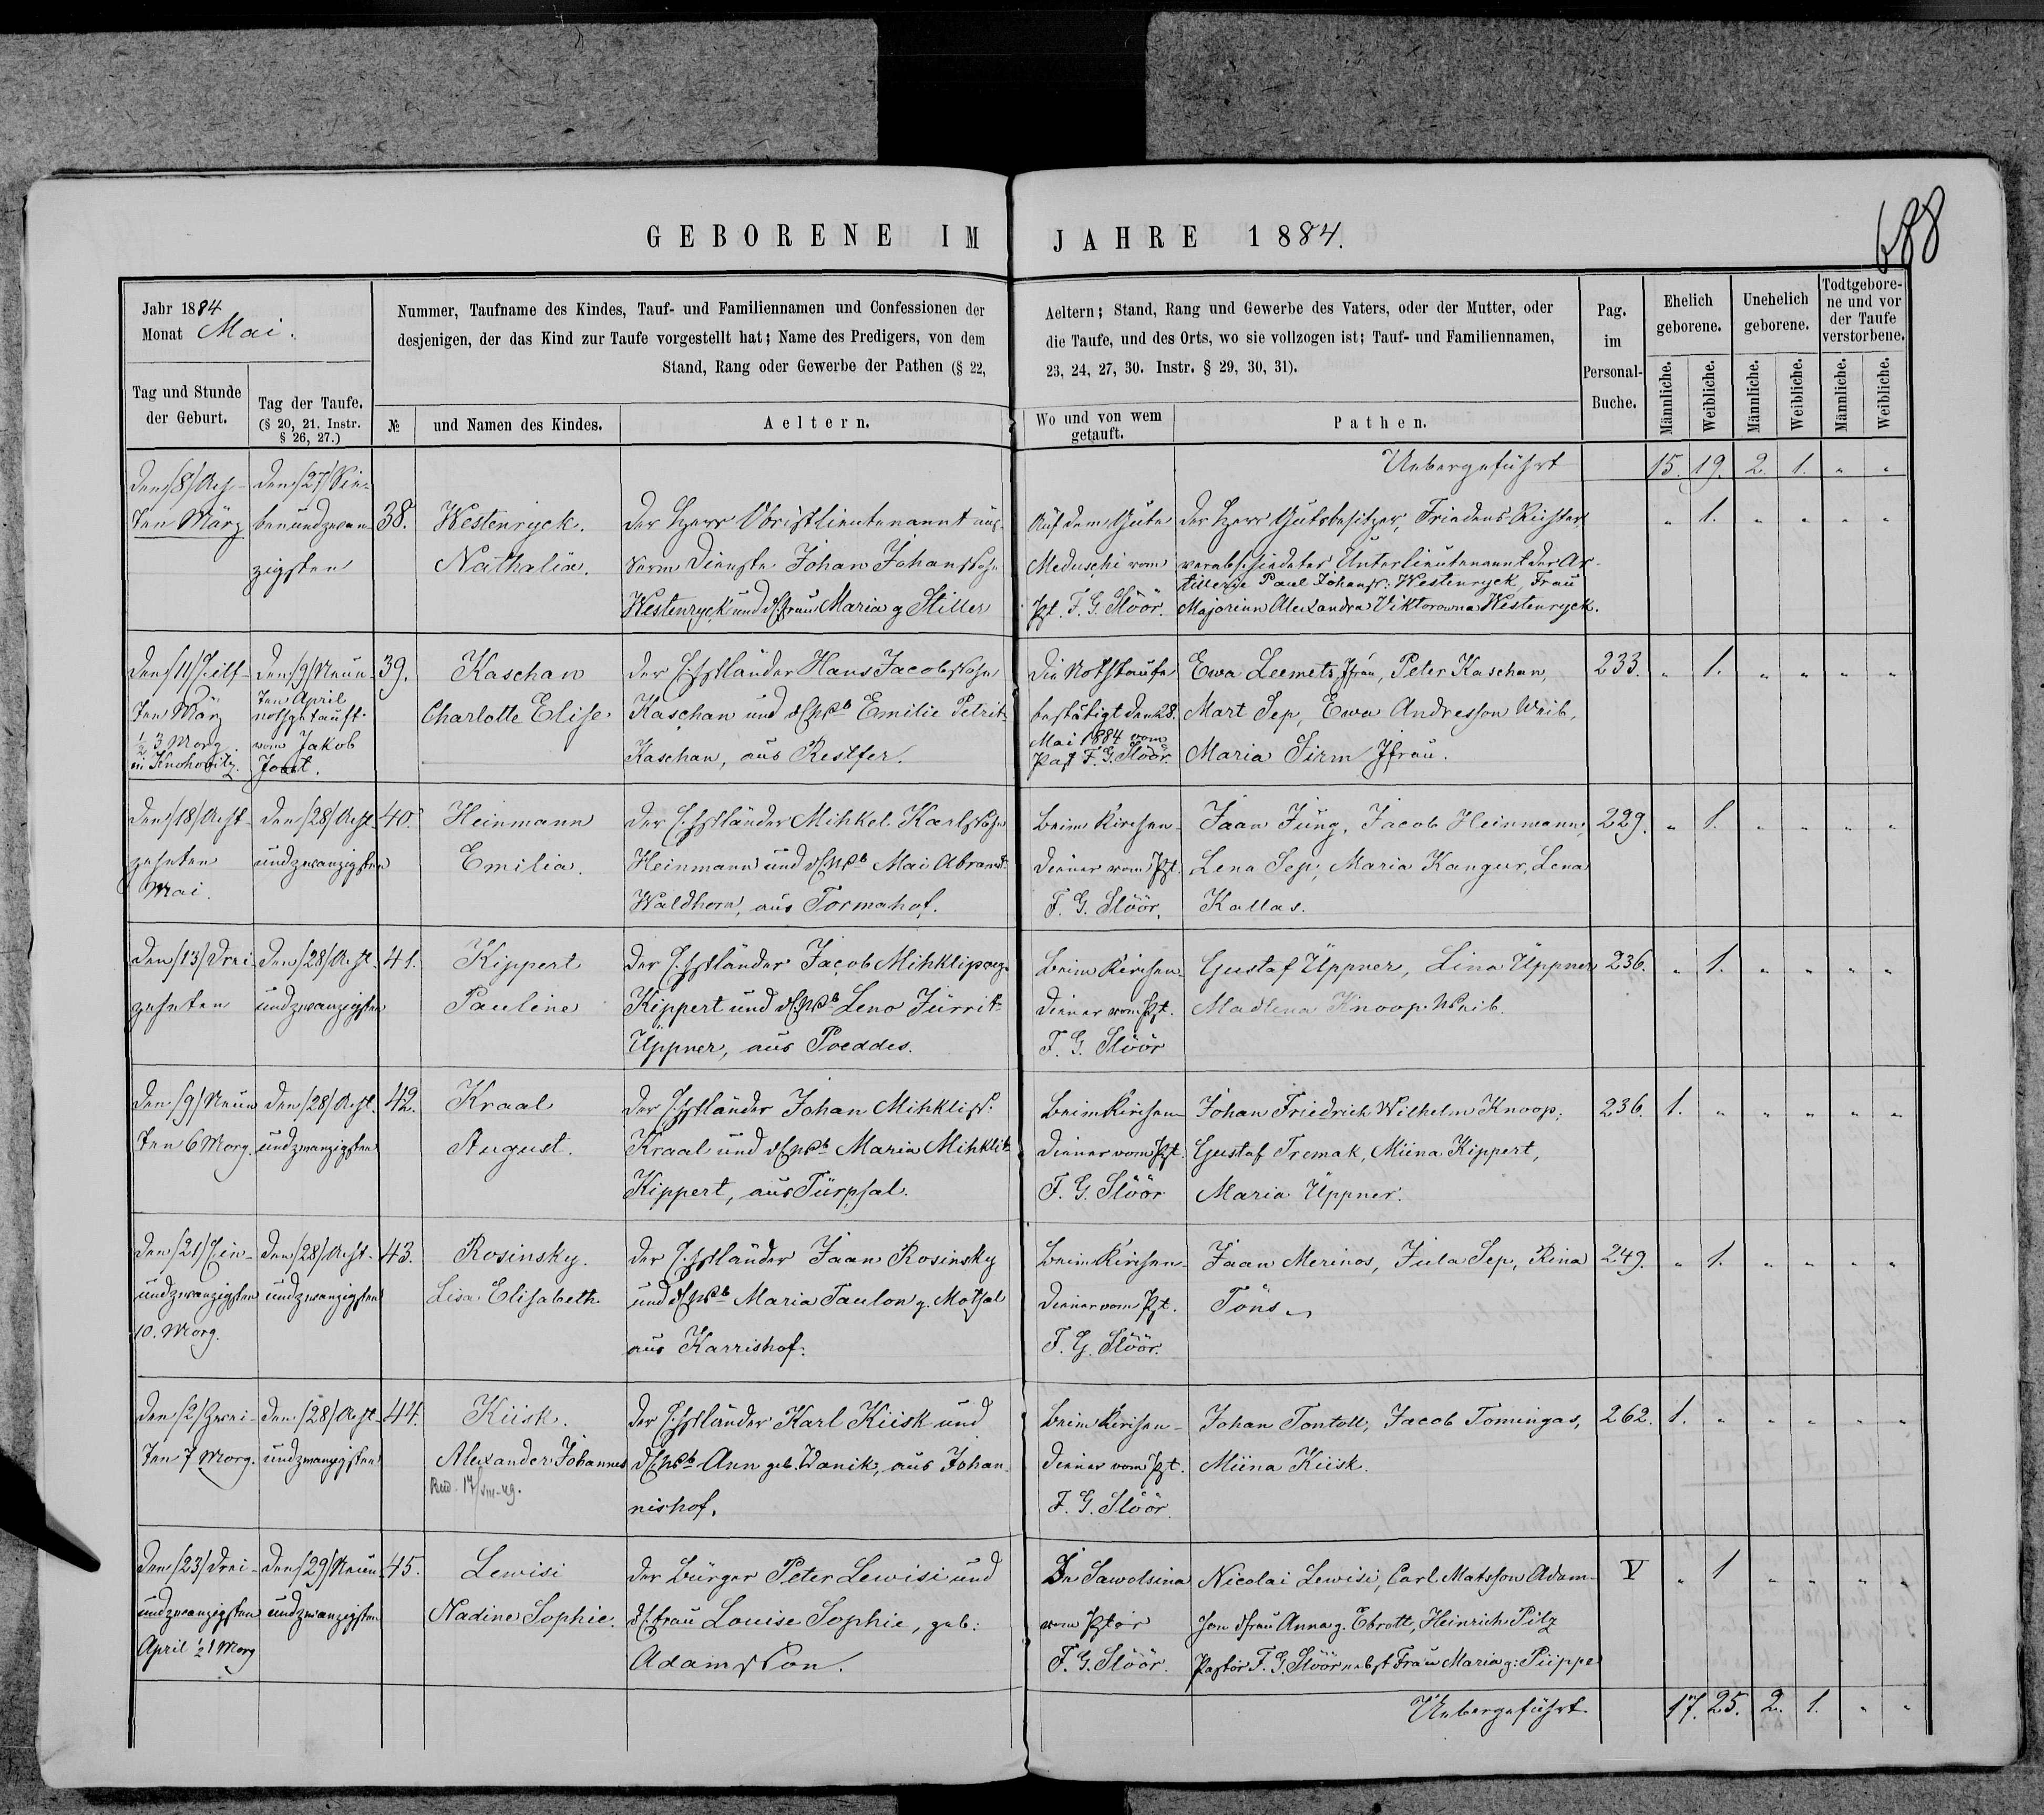 688
GEBORENE IM JAHRE 1884.
Jahr 1884
Monat Mai.
Nummer, Taufname des Kindes, Tauf- und Familiennamen und Confessionen der Aeltern; Stand, Rang und Gewerbe des Vaters, oder der Mutter, oder
desjenigen, der das Kind zur Taufe vorgestellt hat; Name des Predigers, von dem die Taufe, und des Orts, wo sie vollzogen ist; Tauf- und Familiennamen,
Stand, Rang oder Gewerbe der Pathen (§ 22, 23, 24, 27, 30. Instr. § 29, 30, 31).
Pag. im Personal-Buche.
Ehelich geborene.
Unehelich geborene.
Todtgeborene und vor der Taufe verstorbene.
Tag und Stunde der Geburt.
Tag der Taufe.
(§ 20, 21. Instr. § 26, 27.)
№
und Namen des Kindes.
Aeltern.
Wo und von wem getauft.
Pathen.
Männliche. Weibliche. Männliche. Weibliche. Männliche. Weibliche.
Uebergeführt 15. 19. 2. 1. " "
Den /8/ Ach-
ten März
den /27/ Sie-
benundzwan-
zigsten
38.
Westenryck.
Nathalia.
Der Herr Obristlieutenannt aus-
serm Dienste Johan Johans Sohn
Westenryck und d/Frau Maria g Stiller
Auf dem Gute
Meduschi vom
Pst. F. G. Slöör.
der Herr Gutsbesitzer, Friedens Richter
verabschiedeter Unterlieutenannt der Ar-
tillerie Paul Johans: Westenryck, Frau
Majorinn Alexandra Viktorowna Westenryck.
" 1. " " " "
Den /11/ Eilf-
ten März
½ 3 Morg.
den /9/ Neun-
ten April
nothgetauft
vom Jakob
Joost.
39.
Kaschan
Charlotte Elise.
der Ehstländer Hans Jacobs Sohn
Kaschan und Emilie Petrit.
Kaschan, aus Restfer.
Die Nothtaufe
bestätigt den 28.
Mai 1884 vom
Past F. G. Slöör
Ewa Leemets Jfrau, Peter Kaschan,
Mart Sep, Ewa Andresson Weib,
Maria Sirm Jfrau.
233. " 1. " " " "
Den /18/ Acht-
zehnten
Mai.
Den /28/ Acht-
undzwanzigsten
40.
Heinmann
Emilia.
der Ehstländer Mihkel Karls Sohn
Heinmann und Mai Abramt.
Waldhorn, aus Tormahof.
Beim Kirchen-
diener vom Pst.
F. G. Slöör,
Jaan Jüng, Jacob Heinmann,
Lena Sep, Maria Kangur, Lena
Kallas.
229. " 1. " " " "
Den /13/ Drei-
zehnten
Den /28/ Acht-
undzwanzigsten
41.
Kippert
Pauline
der Ehstländer Jacob Mihklipoeg
Kippert und Leno Jürrit.
Üppner, aus Poeddes.
Beim Kirchen-
diener vom Pst.
F. G. Slöör
Gustaf Üppner, Lina Üppner
Madlena Knoop. Weib.
236. " 1. " " " "
Den /9/ Neun-
ten 6 Morg.
Den /28/ Acht-
undzwanzigsten
42.
Kraal
August.
der Ehstländer Johan Mihklis:
Kraal und Maria Mihklit.
Kippert, aus Türpsal.
Beim Kirchen-
diener vom Pst.
F. G. Slöör
Johan Friedrich Wilhelm Knoop;
Gustaf Tremak, Miina Kippert,
Maria Üppner.
236. 1. " " " " "
Den /21/ Ein-
undzwanzigsten
10. Morg.
Den /28/ Acht-
undzwanzigsten
43.
Rosinsky.
Lisa Elisabeth
der Ehstländer Jaan Rosinsky
und Maria Taulon g. Motsal
aus Karrishof.
Beim Kirchen-
diener vom Pst.
F. G. Slöör.
Jaan Merinos, Jula Sep, Rina
Töns
249. " 1. " " " "
Den /2/ Zwei-
ten 7 Morg.
Den /28/ Acht-
undzwanzigsten
44.
Kiisk.
Alexander Johannes
der Ehstländer Karl Kiisk und
Ann geb. Wanik, aus Johan-
nishof.
Beim Kirchen-
diener vom Pst.
F. G. Slöör.
Johan Tontoll, Jacob Tomingas,
Miina Kiisk.
262. 1. " " " " "
Den /23/ Drei-
undzwanzigsten
April ½ 1 Morg
Den /29/ Neun-
undzwanzigsten
45.
Lewisi
Nadine Sophie.
der Bürger Peter Lewisi und
d/Frau Louise Sophie, geb:
Adamsson.
In Sawolsina
vom Pstor
F. G. Slöör.
Nicolai Lewisi, Carl Matsson Adam-
son d/frau Anna g. Ebrott, Heinrich Pilz
Pastor F. G. Slöör nebst Frau Maria g: Piippe
V " 1 " " " "
Uebergeführt 17. 25. 2. 1. " "